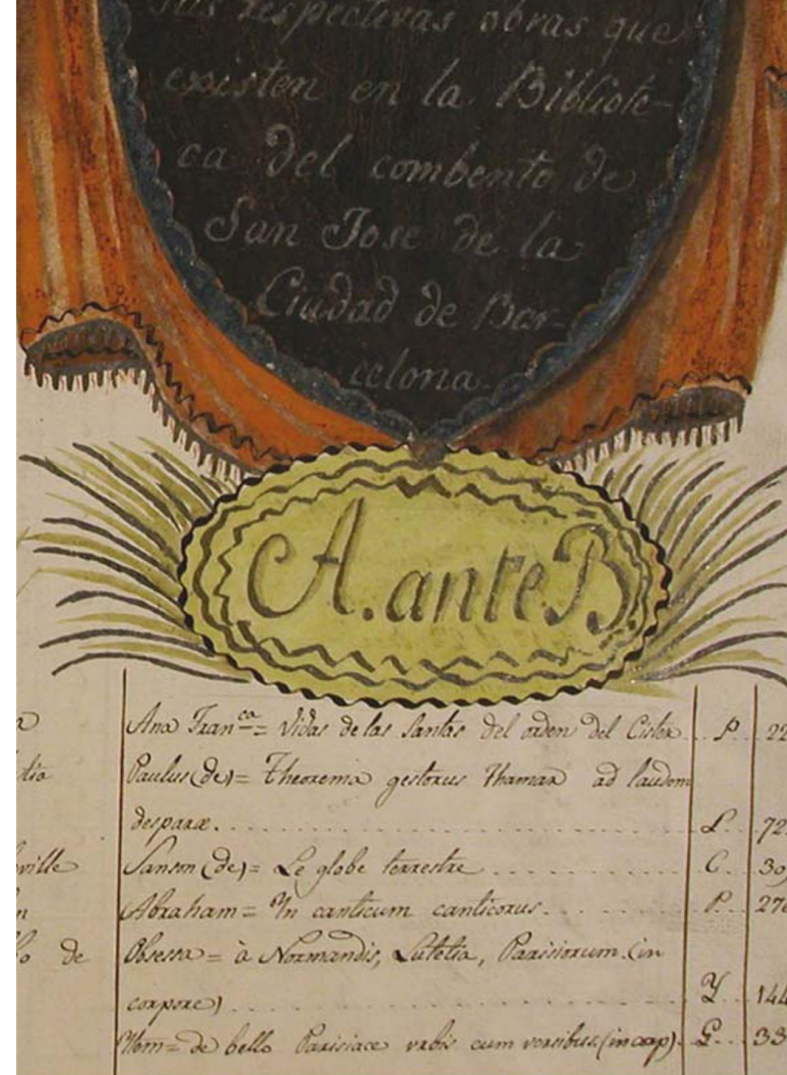 sus respectivas obras que
existen en la Bibliote-
ca del combento de
San Jose de la
Ciudad de Bar-
celona.
A. ante B.
Ana Fran.ca = Vidas de las Santas del orden del Cister P 22
tia Paulus (de) = Theorema gestorus Thamar ad laudem
deiparæ. L. 72
ville Sanson (de) = Le globe terrestre C. 30
n Abraham = In canticum canticorus. P. 27
o de Obsessa = à Normandis, Lutetia, Parisiorum. (in
corpore) Y 144
Idem = de bello Parisiace urbis cum versibus. (in corp) G. 33